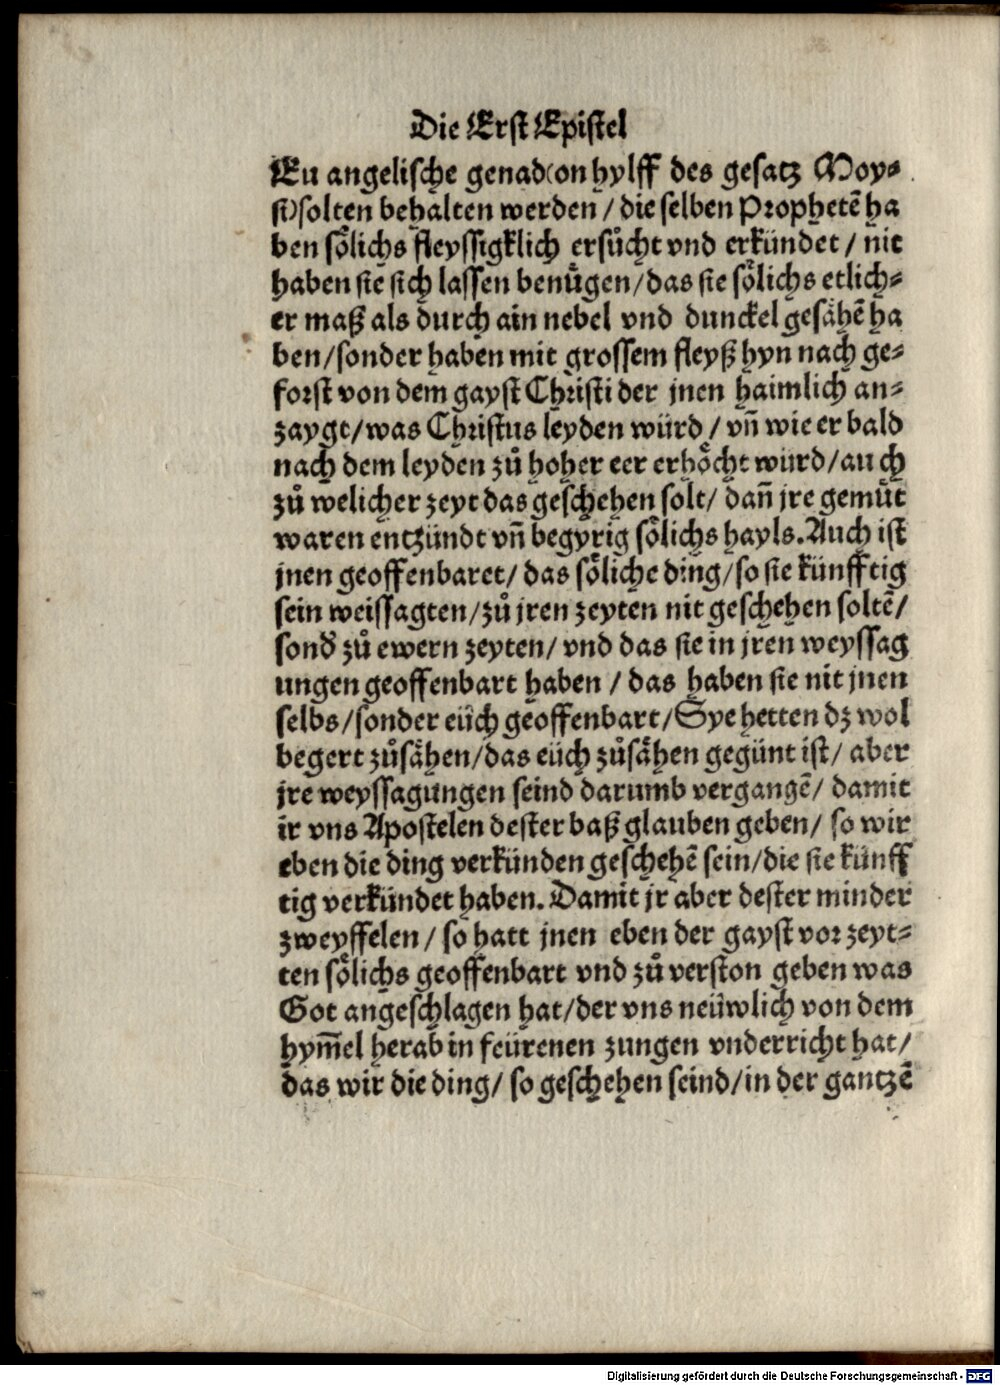 Die Erst Epistel
Eu angelische genad(on hylff des gesatz Moy⸗
si)solten behalten werden / die selben Prophetẽ ha
ben soͤlichs fleyssigklich ersuͦcht vnd erkündet / nit
haben sie sich lassen benuͤgen/das sie soͤlichs etlich⸗
er maß als durch ain nebel vnd dunckel gesaͤhẽ ha
ben/sonder haben mit grossem fleyß hyn nach ge⸗
forst von dem gayst Christi der jnen haimlich an⸗
zaygt/was Christus leyden würd / vñ wie er bald
nach dem leyden zuͦ hoher eer erhoͤcht wurd/au ch
zuͦ welicher zeyt das geschehen solt/ dañ jre gemuͤt
waren entzündt vñ begyrig soͤlichs hayls. Auch ist
jnen geoffenbaret/ das soͤliche ding/so sie künfftig
sein weissagten/zuͦ jren zeyten nit geschehen soltẽ/
sond' zuͦ ewern zeyten/ vnd das sie in jren weyssag
ungen geoffenbart haben / das haben sie nit jnen
selbs/sonder eüch geoffenbart/Sye hetten dz wol
begert zuͦsaͤhen/das eüch zuͦsaͤhen gegünt ist/ aber
jre weyssagungen seind darumb vergangẽ/ damit
ir vns Apostelen dester baß glauben geben/ so wir
eben die ding verkünden geschehẽ sein/die sie künff
tig verkündet haben. Damit jr aber dester minder
zweyffelen / so hatt jnen eben der gayst vor zeyt⸗
ten soͤlichs geoffenbart vnd zuͦ verston geben was
Got angeschlagen hat/der vns neüwlich von dem
hym̃el herab in feürenen zungen vnderricht hat/
das wir die ding/ so geschehen seind/in der gantzẽ
Digitalisierung gefördert durch die Deutsche Forschungsgemeinschaft - DFG